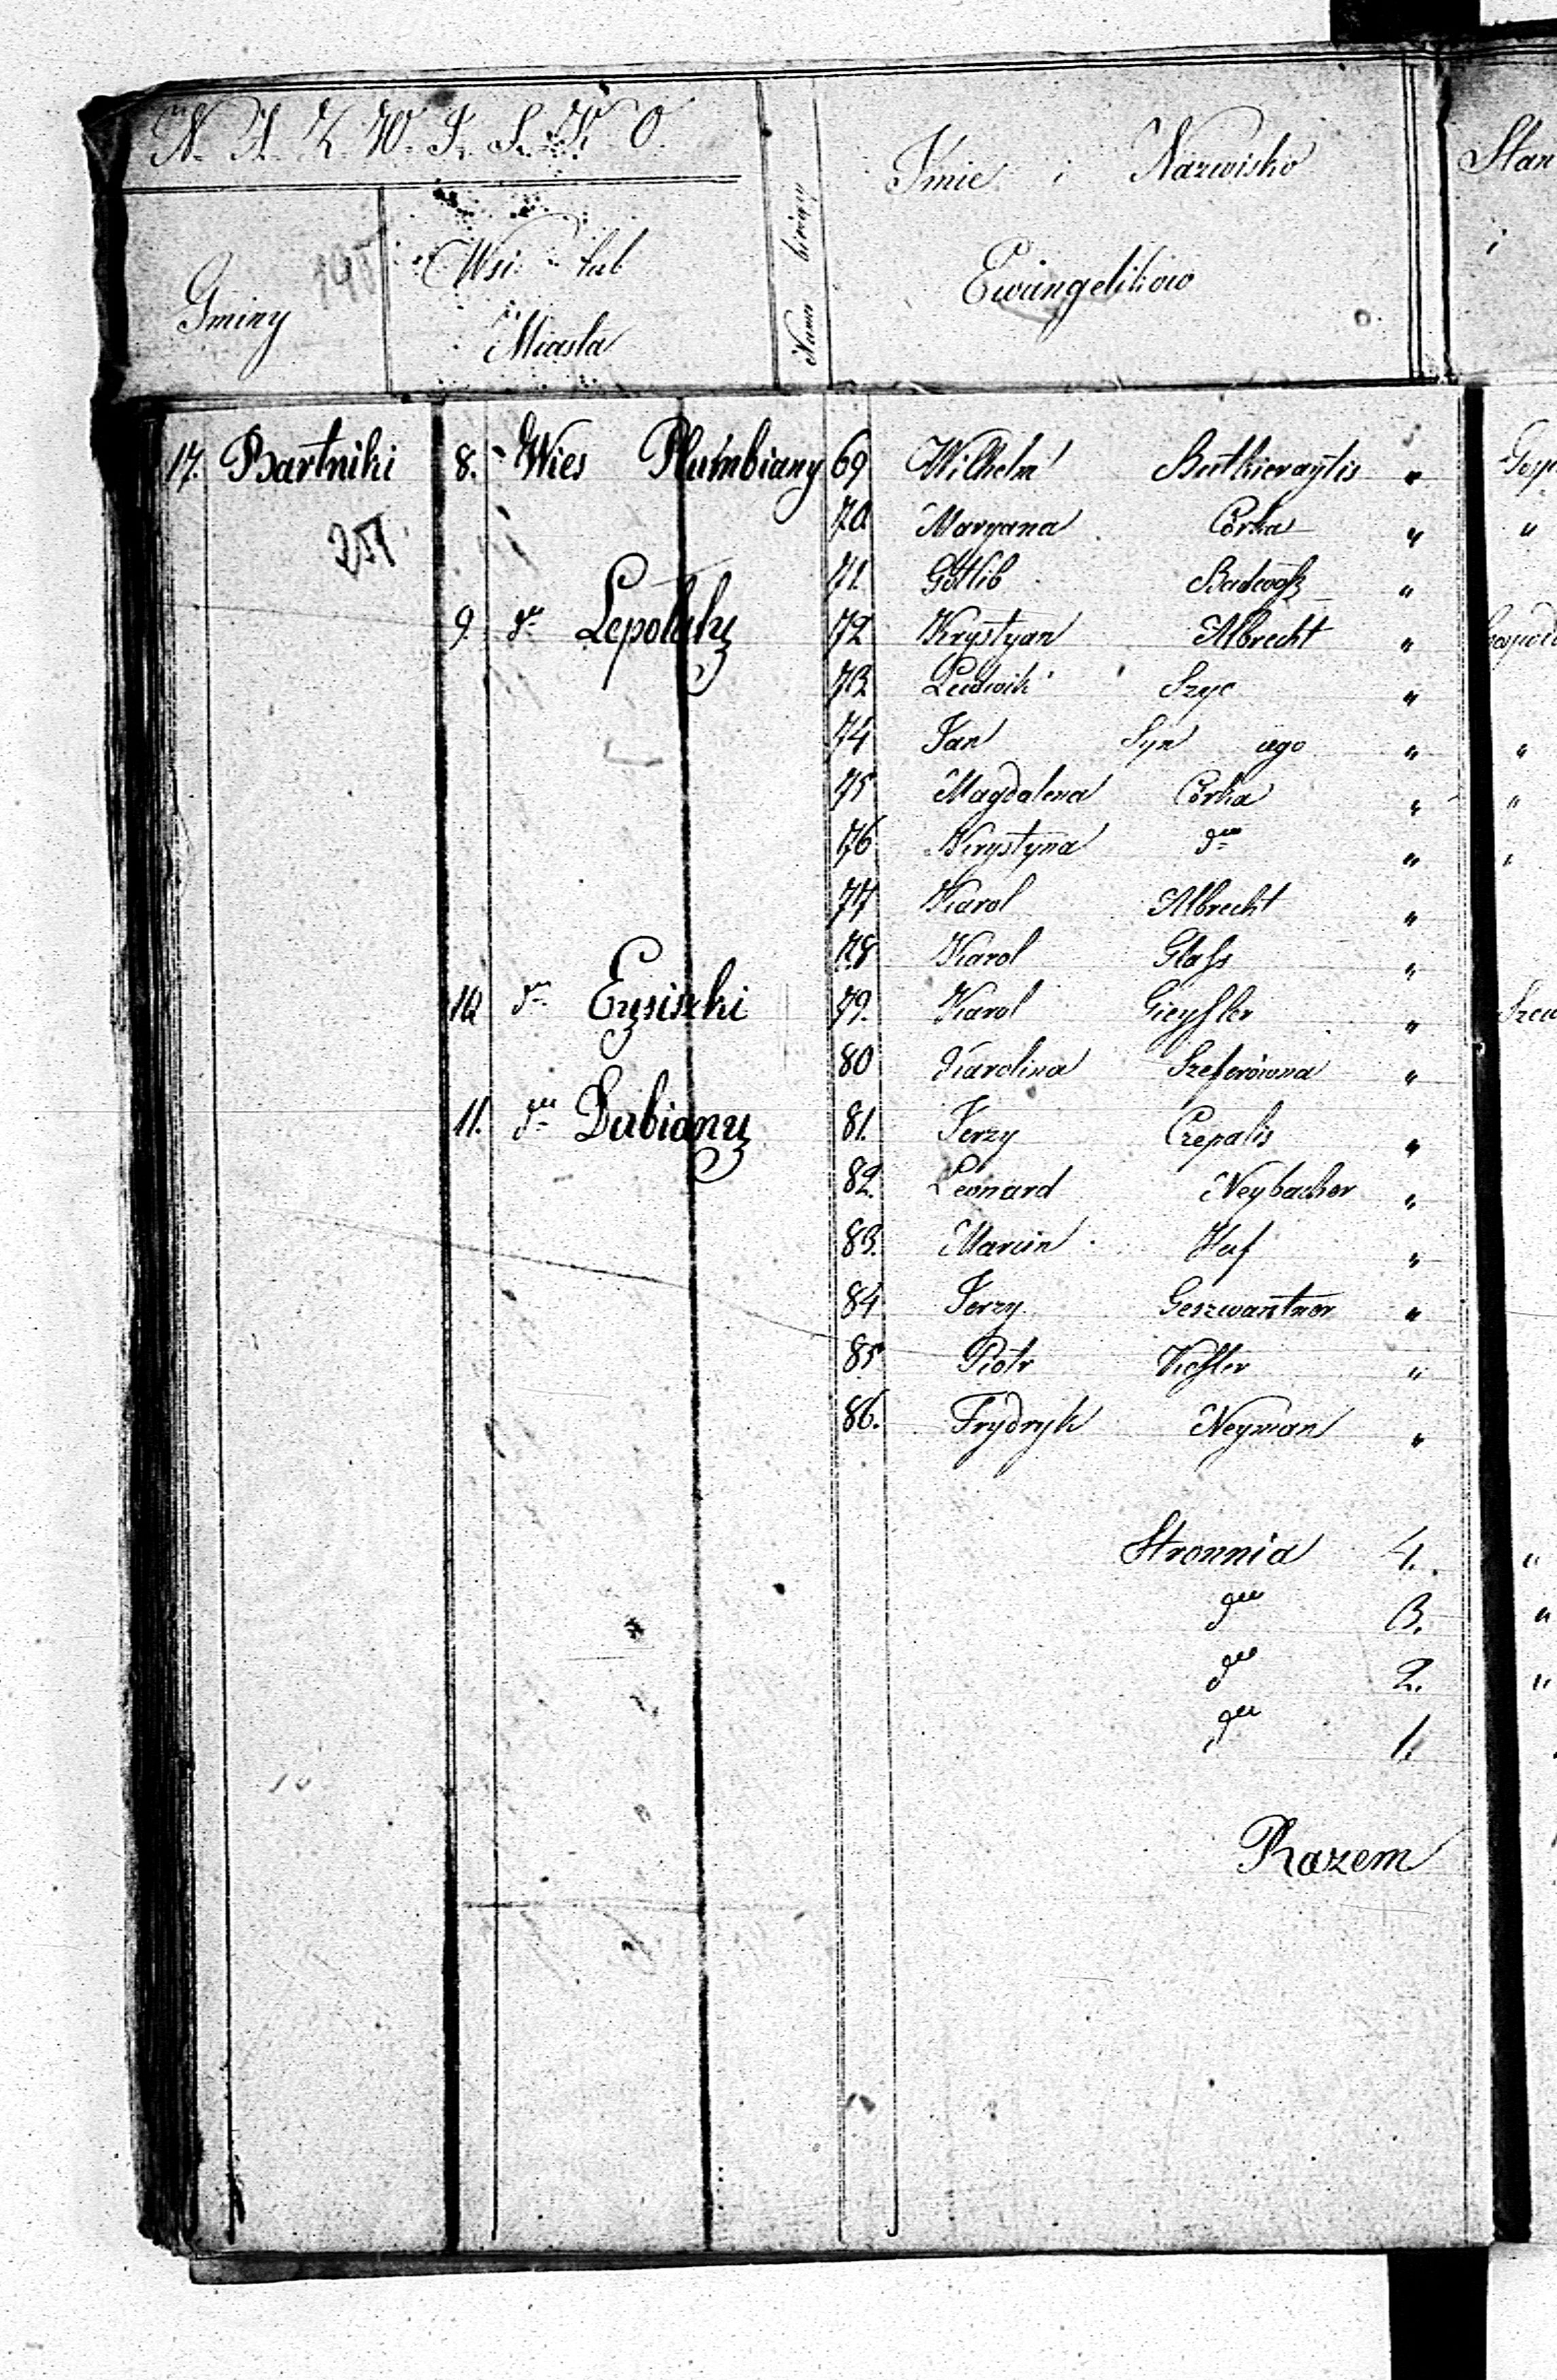 N. A. Z. W. I. S. K. O.
Gminy
Wsi lub
Miasta
Numer bieżący
Imie i Nazwisko
Ewangelikow
Stan
i
17. Bartniki 8. Wies Plumbiany 69 Wilhelm Butkieraytis "
251 70 Maryana Córka " "
71. Gotlib "
9. dto Lepolaty 72 Krystyan Albrecht "
73 Ludwik Szyc "
74 Jan Syn iego " "
75 Magdalena Córka " "
76 Krystyna dto " "
77 Karol Albrecht "
78 Karol Glass "
10 dto Ezysiszki 79. Karol Gieysler "
80 Karolina Szeferówna "
11. dto Dubiany 81. Jerzy Czepalis "
82. Leonard Neybacher "
83. Marcin Huf "
84 Jerzy Geszwantner "
85 Piotr Kessler "
86. Frydryk Neyman "
Stronnia 4. "
dto 3. "
dto 2. "
dto 1.
Razem